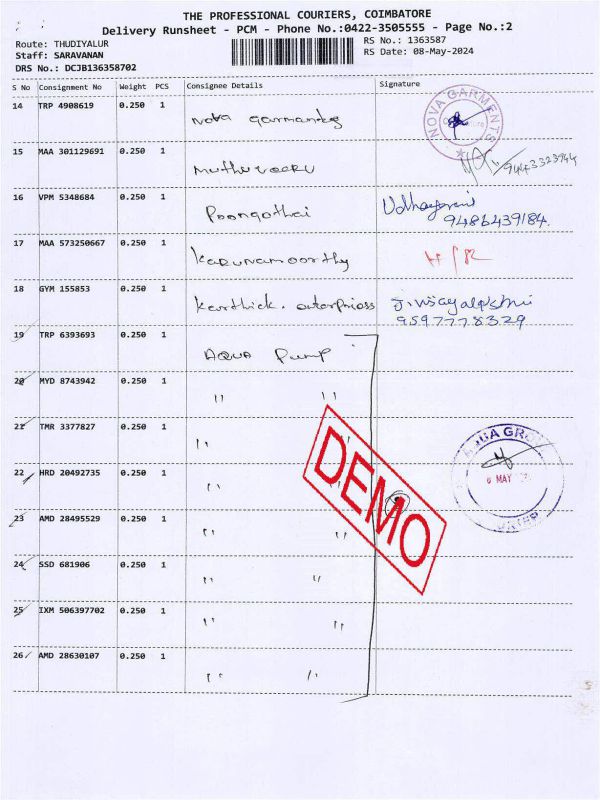 THE PROFESSIONAL COURIERS, COIMBATORE
Delivery Runsheet - PCM - Phone No.:0422-3505555 - Page No.:2
Route: THUDIYALUR RS No.: 1363587
Staff: SARAVANAN RS Date: 08-May-2024
DRS No.: DCJB136358702
S No Consignment No Weight PCS Consignee Details Signature
14 TRP 4908619 0.250 1
Nova Garmandes
NOVA GARMENTS
15 MAA 301129691 0.250 1
9443323944
16 VPM 5348684 0.250 1
Poongothai
9486439184.
17 MAA 573250667 0.250 1
Karunamoorthy
18 GYM 155853 0.250 1
Karthick. enterprioss J. Vijayalakshmi
9597778329
19 TRP 6393693 0.250 1
AQUA Pump
20 MYD 8743942 0.250 1
" "
21 TMR 3377827 0.250 1
" "
AQUA GRO
22 HRD 20492735 0.250 1
" "
MAY
23 AMD 28495529 0.250 1
" "
DEMO
24 SSD 681906 0.250 1
" "
25 IXM 506397702 0.250 1
" "
26 AMD 28630107 0.250 1
" "